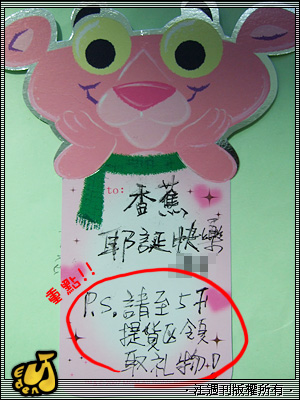 to:
香蕉
耶誕快樂
重點!!
P.S.請至5F
提貨区領
取礼物:D
江週刊版權所有